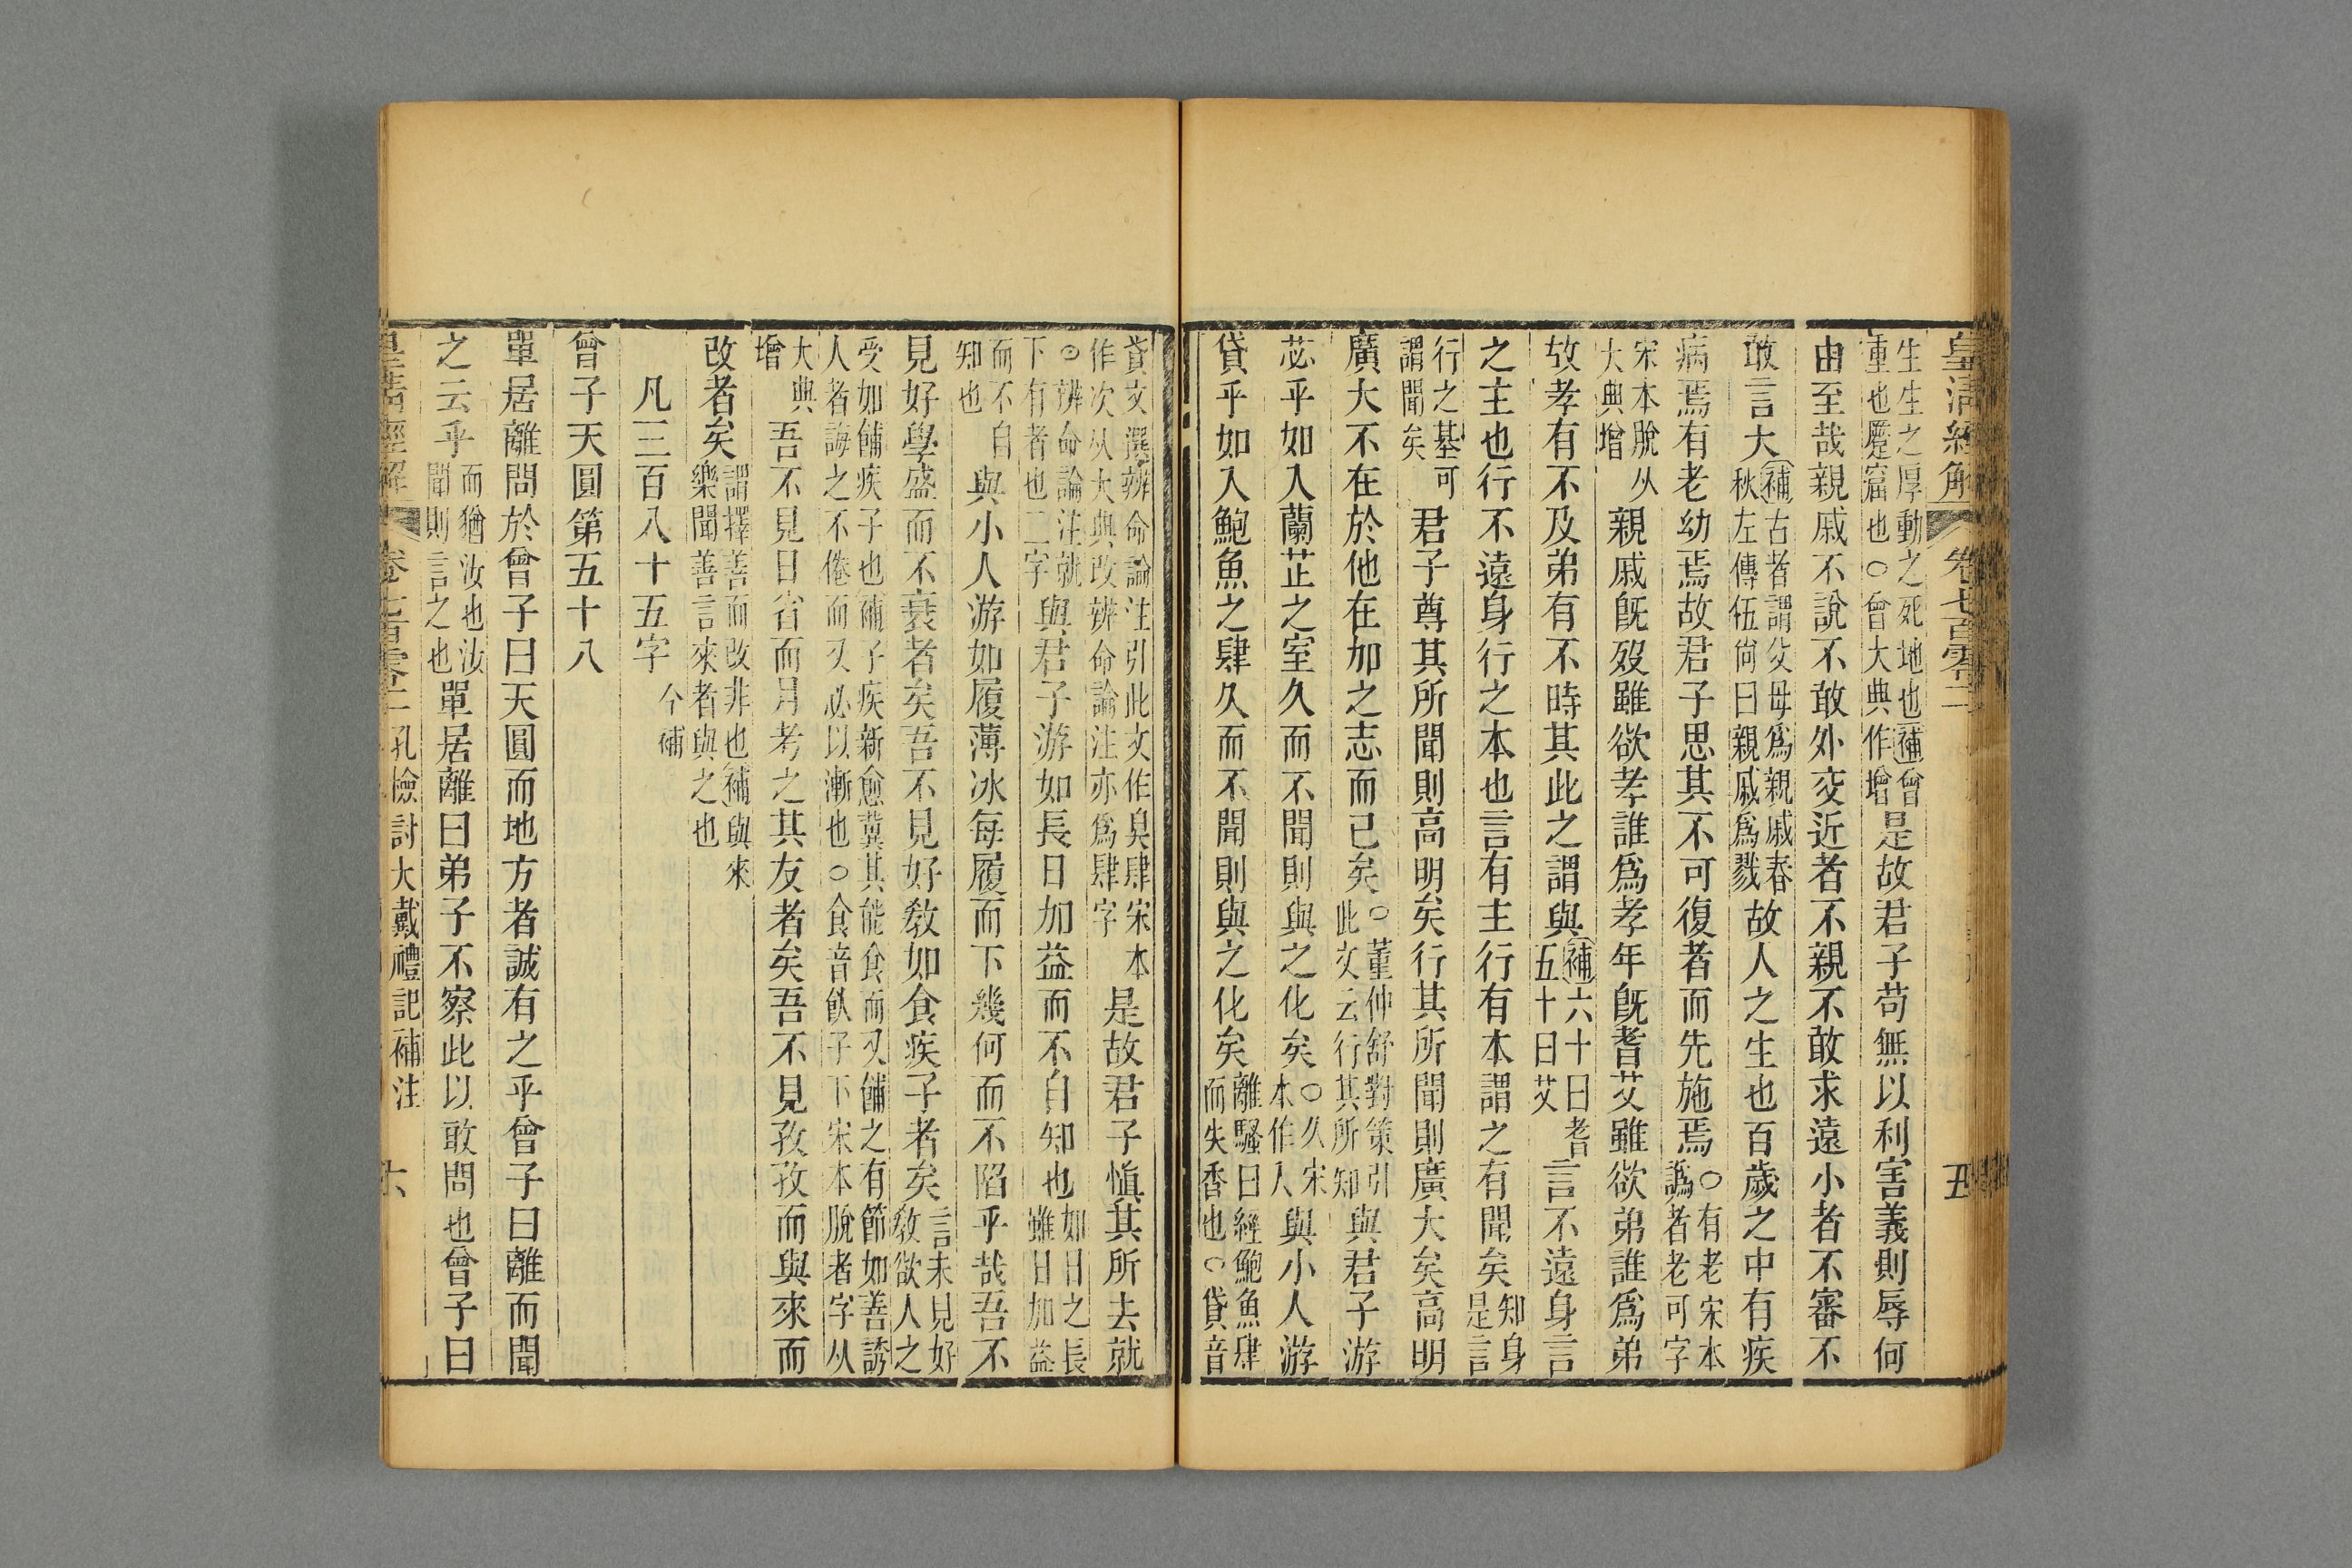 皇清經解 卷七百零二 五
生生之厚動之死地也補曾
重也蹷窟也○曾大典作增是故君子苟無以利害義則辱何
由至哉親戚不說不敢外交近者不親不敢求遠小者不審不
敢言大補古者謂父母爲親戚春
秋左傳伍尙曰親戚爲戮故人之生也百歲之中有疾
病焉有老幼焉故君子思其不可復者而先施焉○有老宋本
譌者老可字
宋本脫从
大典增親戚旣歿雖欲孝誰爲孝年旣耆艾雖欲弟誰爲弟
故孝有不及弟有不時其此之謂與補六十曰耆
五十曰艾言不遠身言
之主也行不遠身行之本也言有主行有本謂之有聞矣知身
是言
行之基可
謂聞矣君子尊其所聞則高明矣行其所聞則廣大矣高明
廣大不在於他在加之志而已矣○董仲舒對策引
此文云行其所知與君子游
苾乎如入蘭芷之室久而不聞則與之化矣○久宋
本作入與小人游
貸乎如入鮑魚之肆久而不聞則與之化矣離騷曰經鮑魚肆
而失香也○貸音
貣文選辨命論注引此文作臭肆宋本
作次从大典改辨命論注亦爲肆字是故君子愼其所去就
○辨命論注就
下有者也二字與君子游如長日加益而不自知也如日之長
雖日加益
而不自
知也與小人游如履薄冰每履而下幾何而不陷乎哉吾不
見好學盛而不衰者矣吾不見好敎如食疾子者矣言未見好
敎欲人之
受如餔疾子也補子疾新愈冀其能食而又餔之有節如善誘
人者誨之不倦而又必以漸也○食音飤子下宋本脫者字从
大典
增吾不見日省而月考之其友者矣吾不見孜孜而與來而
改者矣謂擇善而改非也補與來
樂聞善言來者與之也
凡三百八十五字今補
曾子天圓第五十八
單居離問於曾子曰天圓而地方者誠有之乎曾子曰離而聞
之云乎而猶汝也汝
聞則言之也單居離曰弟子不察此以敢問也曾子曰
皇淸經解 卷七百零二 孔檢討大戴禮記補注 六